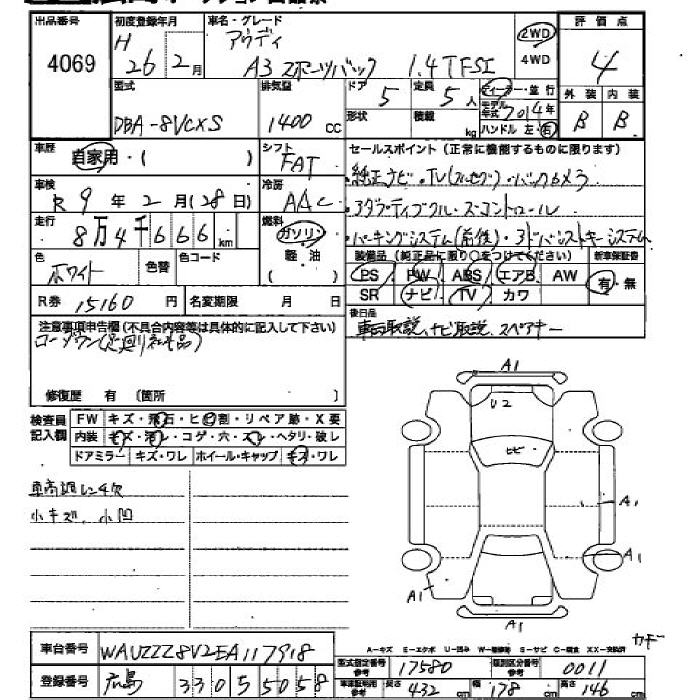 出品番号
4069
初度登録年月
H
26 2月
車名・グレード
アウディ
A3 スポーツバック 1.4TFSI
2WD
4WD
評価点
4
外装 内装
B B
型式
DBA-8VCXS
排気量
1400 CC
ドア 5
形状
定員 5人
積載 kg
ディーラー・並行
モデル年式 2014年
ハンドル 左・右
車歴
自家用・( )
シフト
FAT
車検
R 9年 2月(28日)
冷房
AAC
走行
8万4千666km
燃料
ガソリン・
軽・油
( )
色
ホワイト
色替
色コード
R券 15160円
名変期限 月 日
セールスポイント(正常に機能するものに限ります)
・純正ナビ・TV(フルセグ)・バックカメラ
・アダプティブクルーズコントロール
・パーキングシステム(前後)・アドバンストキーシステム
装備品(純正品に限り○をつけてください)
新車保証書
PS PW ABS エアB AW
SR ナビ TV カワ
有・無
後日品
車両取説、ナビ取説、スペアキー
注意事項申告欄(不具合内容等は具体的に記入して下さい)
ローダウン(足廻り社外品)
修復歴 有 〔箇所 〕
検査員
記入欄
FW キズ・飛石・ヒビ割・リペア跡・X要
内装 キズ・汚レ・コゲ・穴・スレ・ヘタリ・破レ
ドアミラー キズ・ワレ ホイール・キャップ キズ・ワレ
車高調レンチ欠
小キズ、小凹
A1
U2
ヒビ
A1
A1
A1
A1
カギ
A-キズ E-エクボ U-凹み W-補修跡 S-サビ C-腐食 XX-交換済
車台番号 WAUZZZ8V2EA117918
登録番号 広島 330 5 5058
型式指定番号 参考 17580
類別区分番号 参考 0011
車庫証明用 参考 長さ 432 cm 幅 178 cm 高さ 146 cm